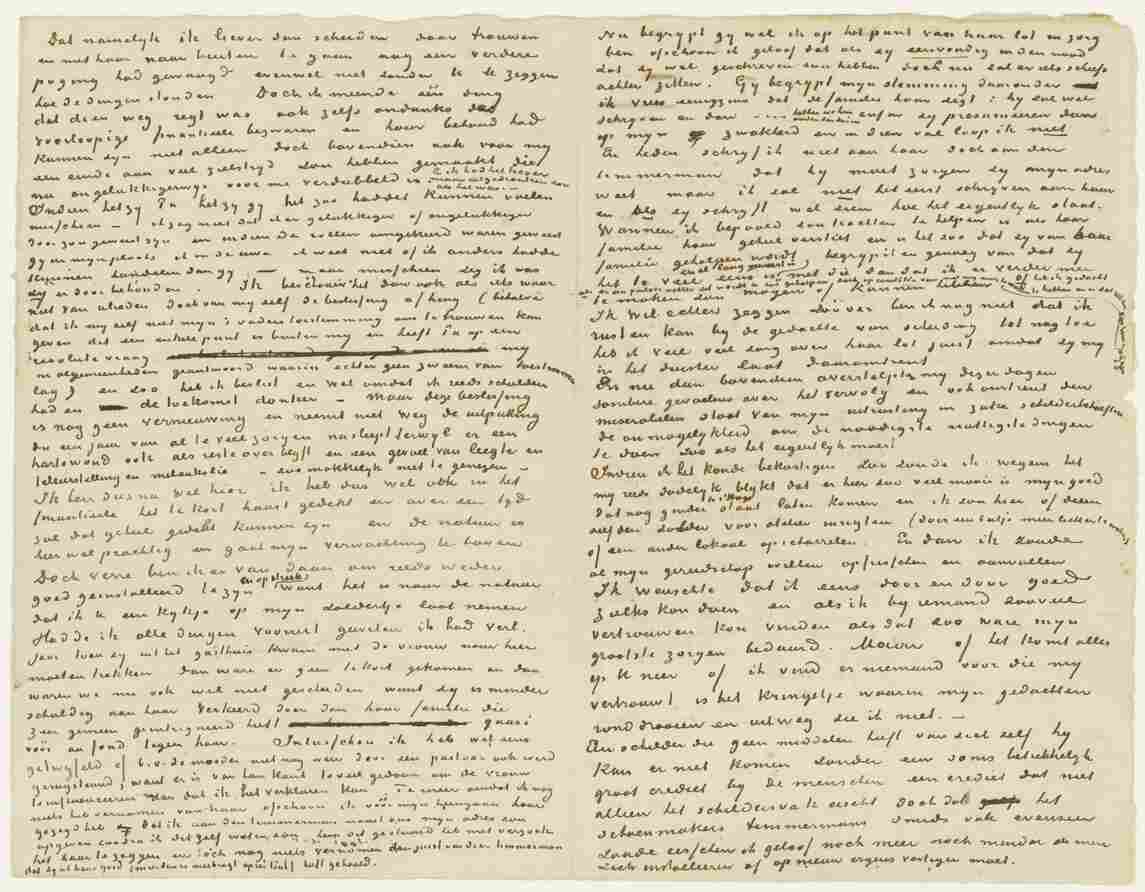 Dat namelijk ik liever dan scheiden door trouwen
en met haar naar buiten te gaan nog een verdere
poging had gewaagd evenwel niet zonder te zeggen
hoe de dingen stonden Doch ik meende één ding
dat dien weg regt was ook zelfs ondanks
voorloopige finantieele bezwaren en haar behoud had
kunnen zijn niet alleen doch bovendien ook voor mij
een einde aan veel zielstrijd zou hebben gemaakt die
nu ongelukkigerwijs voor me verdubbeld is
en ik had het liever
als het was.
Indien hetzij Pa hetzij gij het zoo haddet kunnen voelen
misschien – ik zeg niet dat wij er gelukkiger of ongelukkiger
door zou geweest zijn en indien de rollen omgekeerd waren geweest
gij in mijn plaats ik in de uwe ik weet niet of ik anders hadde
kunnen handelen dan gij — maar misschien zeg ik was
zij er door behouden. Ik beschouw het dan ook als iets waar
niet van alleen doch van mij zelf de beslissing afhing (behalve
dat ik mij zelf niet mijn's vaders toestemming om te trouwen kan
geven dit een ander punt is buiten mij en heeft Pa op een
resolute vraag mij
in algemeenheden geantwoord waarin echter geen zweem van toestemming
lag) en zoo heb ik beslist en wel omdat ik reeds schulden
had en de toekomst donker – Maar deze beslissing
is nog geen vernieuwing en neemt niet weg de uitputting
die een jaar van al te veel zorgen nasleept terwijl er een
hartewond ook als reste overblijft en een gevoel van leegte en
teleurstelling en melankolie – zoo makkelijk niet te genezen –
Ik ben dus nu wel hier ik heb dus wel ook in het
finantieele het te kort haast gedekt en over een tijd
zal dat geheel gedekt kunnen zijn en de natuur is
hier wel prachtig en gaat mijn verwachting te boven
Doch verre ben ik er van daan om reeds weder
goed geinstalleerd te zijn
en op streek
Want het is naar de natuur
dat ik U een kijkje op mijn zoldertje laat nemen
Hadde ik alle dingen vooruit geweten ik had verl.
jaar toen zij uit het gasthuis kwam met de vrouw naar hier
moeten trekken dan ware er geen te kort gekomen en dan
waren we nu ook wel niet gescheiden want zij is minder
schuldig aan haar verkeerd doen dan haar familie die
zeer gemeen geintrigeerd heeft quasi
vóór au fond tegen haar. Intusschen ik heb wel eens
getwijfeld of b.v. de moeder niet nog weer door een pastoor ook werd
geruggesteund, want er is van hun kant te veel gedaan om de vrouw
te influenceeren dan dat ik het verklaren kan Te meer omdat ik nog
niets heb vernomen van haar ofschoon ik vóór mijn heengaan haar
gezegd heb dat ik aan den timmerman naast ons mijn adres zou
opgeven zoodra ik dit zelf weten zou, hem dit gestuurd heb met verzoek
het haar te zeggen en toch nog niets vernomen dan juist van den timmerman
dat zij al haar goed heeft gehaald.
Nu begrijpt gij wel ik op het punt van haar lot in zorg
ben ofschoon ik geloof dat als zij eenvoudig in den nood
zat zij wel geschreven zou hebben doch nu zal er iets scheefs
achter zitten. Gij begrijpt mijn stemming daaronder
ik vrees eenigzins dat de familie haar zegt: hij zal wel
schrijven en dan hebben we hem enfin zij presumeeren dan
op mijn zwakheid en in dien val loop ik niet
En heden schrijf ik niet aan haar doch aan den
timmerman dat hij moet zorgen zij mijn adres
weet maar ik zal niet het eerst schrijven aan haar
en als zij schrijft wel zien hoe het eigentlijk staat.
Wanneer ik bepaald zou trachten te helpen is als haar
familie haar geheel verstiet en is het zoo dat zij van haar
familie geholpen wordt begrijpt ge genoeg van dat zij
het te veel eens is met die dan dat ik er verder mee
te maken zou mogen of kunnen hebben
Ik wil echter zeggen zoover ben ik nog niet dat ik
rusten kan bij de gedachte van scheiding tot nog toe
heb ik veel veel zorg over haar lot juist omdat zij mij
in het duister laat daaromtrent.
En nu dan bovendien overstelpt mij dezer dagen
sombere gevoelens over het vervolg en ook omtrent den
miserabelen staat van mijn uitrusting in zake schilderbehoeften
de onmogelijkheid om de noodigste nuttigste dingen
te doen zoo als het eigentlijk moest
Indien ik het konde bekostigen zou ik wegens het
mij reeds dadelijk blijkt dat er hier zoo veel moois is mijn goed
dat nog ginder staat laten komen en ik zou hier of dezen
zelfden zolder voor atelier inrigten (door een beetje meer licht te maken)
of een ander lokaal opscharrelen. En dan ik zoude
al mijn gereedschap willen opfrisschen en aanvullen
Ik wenschte dat ik eens door en door goed
zulks kon doen en als ik bij iemand zooveel
vertrouwen kon vinden als dat zoo ware mijn
grootste zorgen bedaard. Maar of het komt alles
op U neer of ik vind er niemand voor die mij
vertrouwt is het kringetje waarin mijn gedachten
ronddraaien en uitweg zie ik niet. –
Een schilder die geen middelen heeft van zich zelf hij
kan er niet komen zonder een soms betrekkelijk
groot crediet bij de menschen een crediet dat niet
alleen het schildersvak eischt doch dat het
schoenmakers timmermans smids vak evenzeer
zoude eisschen ik geloof noch meer noch minder als men
zich installeeren of op nieuw ergens vestigen moet.